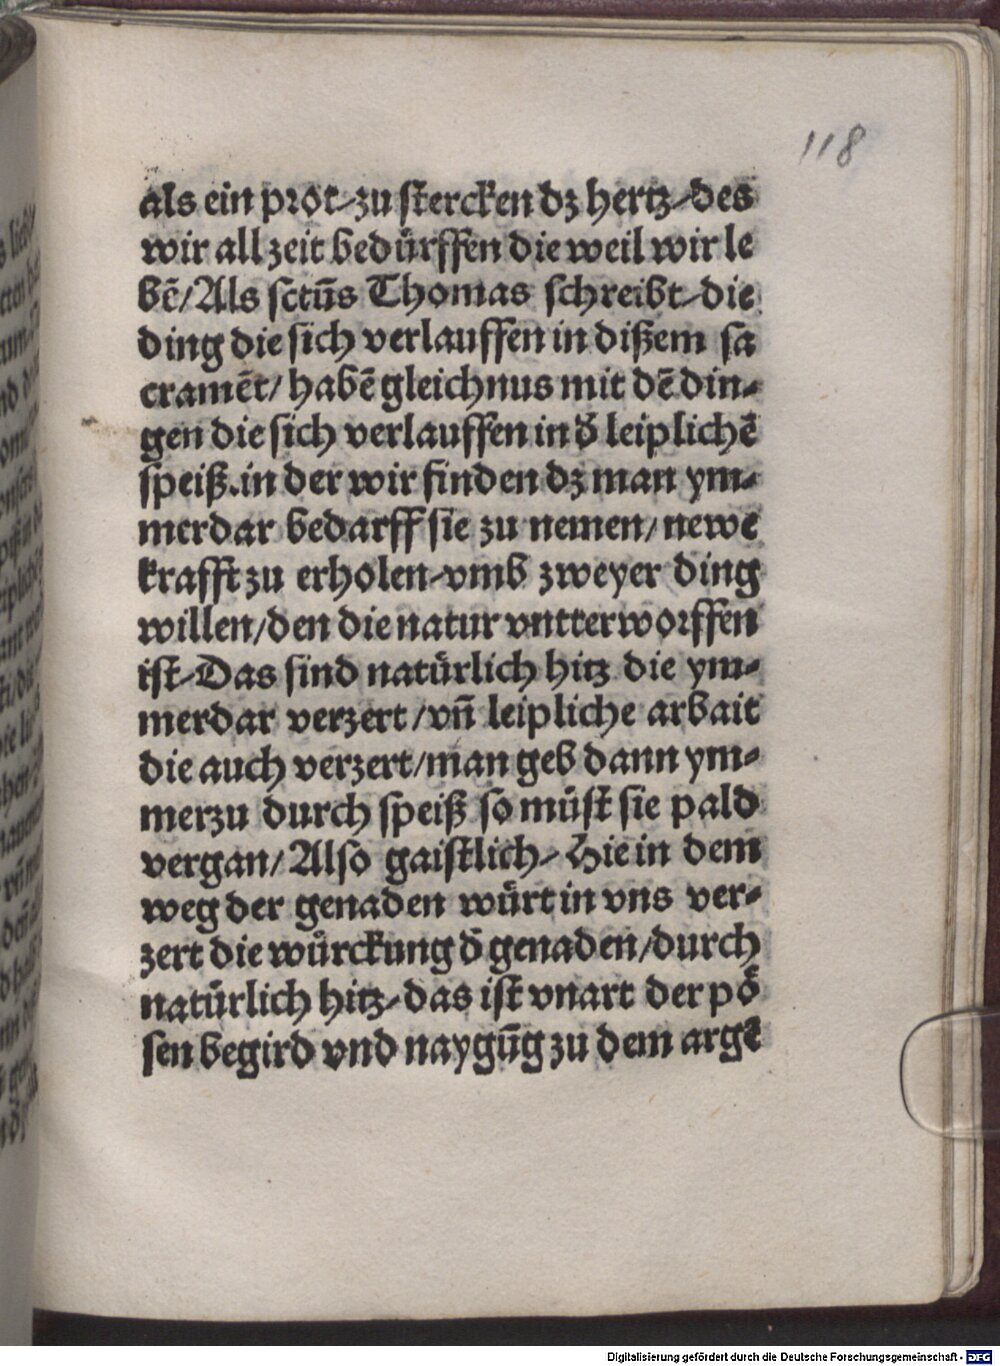 118
als ein prot-zu stercken dz hertz-des
wir all zeit bedürffen die weil wir le
bē/Als sctūs Thomas schreibt-die
ding die sich verlauffen in dißem sa
cramēt/habē gleichnus mit dē din-
gen die sich verlauffen in d̄ leiplichē
speiß.in der wir finden dz man ym-
merdar bedarff sie zu nemen/newe
krafft zu erholen-vmb zweyer ding
willen/den die natur vntterworffen
ist-Das sind natürlich hitz die ym-
merdar verzert/vn̄ leipliche arbait
die auch verzert/man geb dann ym-
merzu durch speiß so müst sie pald
vergan/Also gaistlich-Hie in dem
weg der genaden würt in vns ver-
zert die würckung d̄ genaden/durch
natürlich hitz-das ist vnart der pö
sen begird vnd naygūg zu dem argē
Digitalisierung gefördert durch die Deutsche Forschungsgemeinschaft - DFG